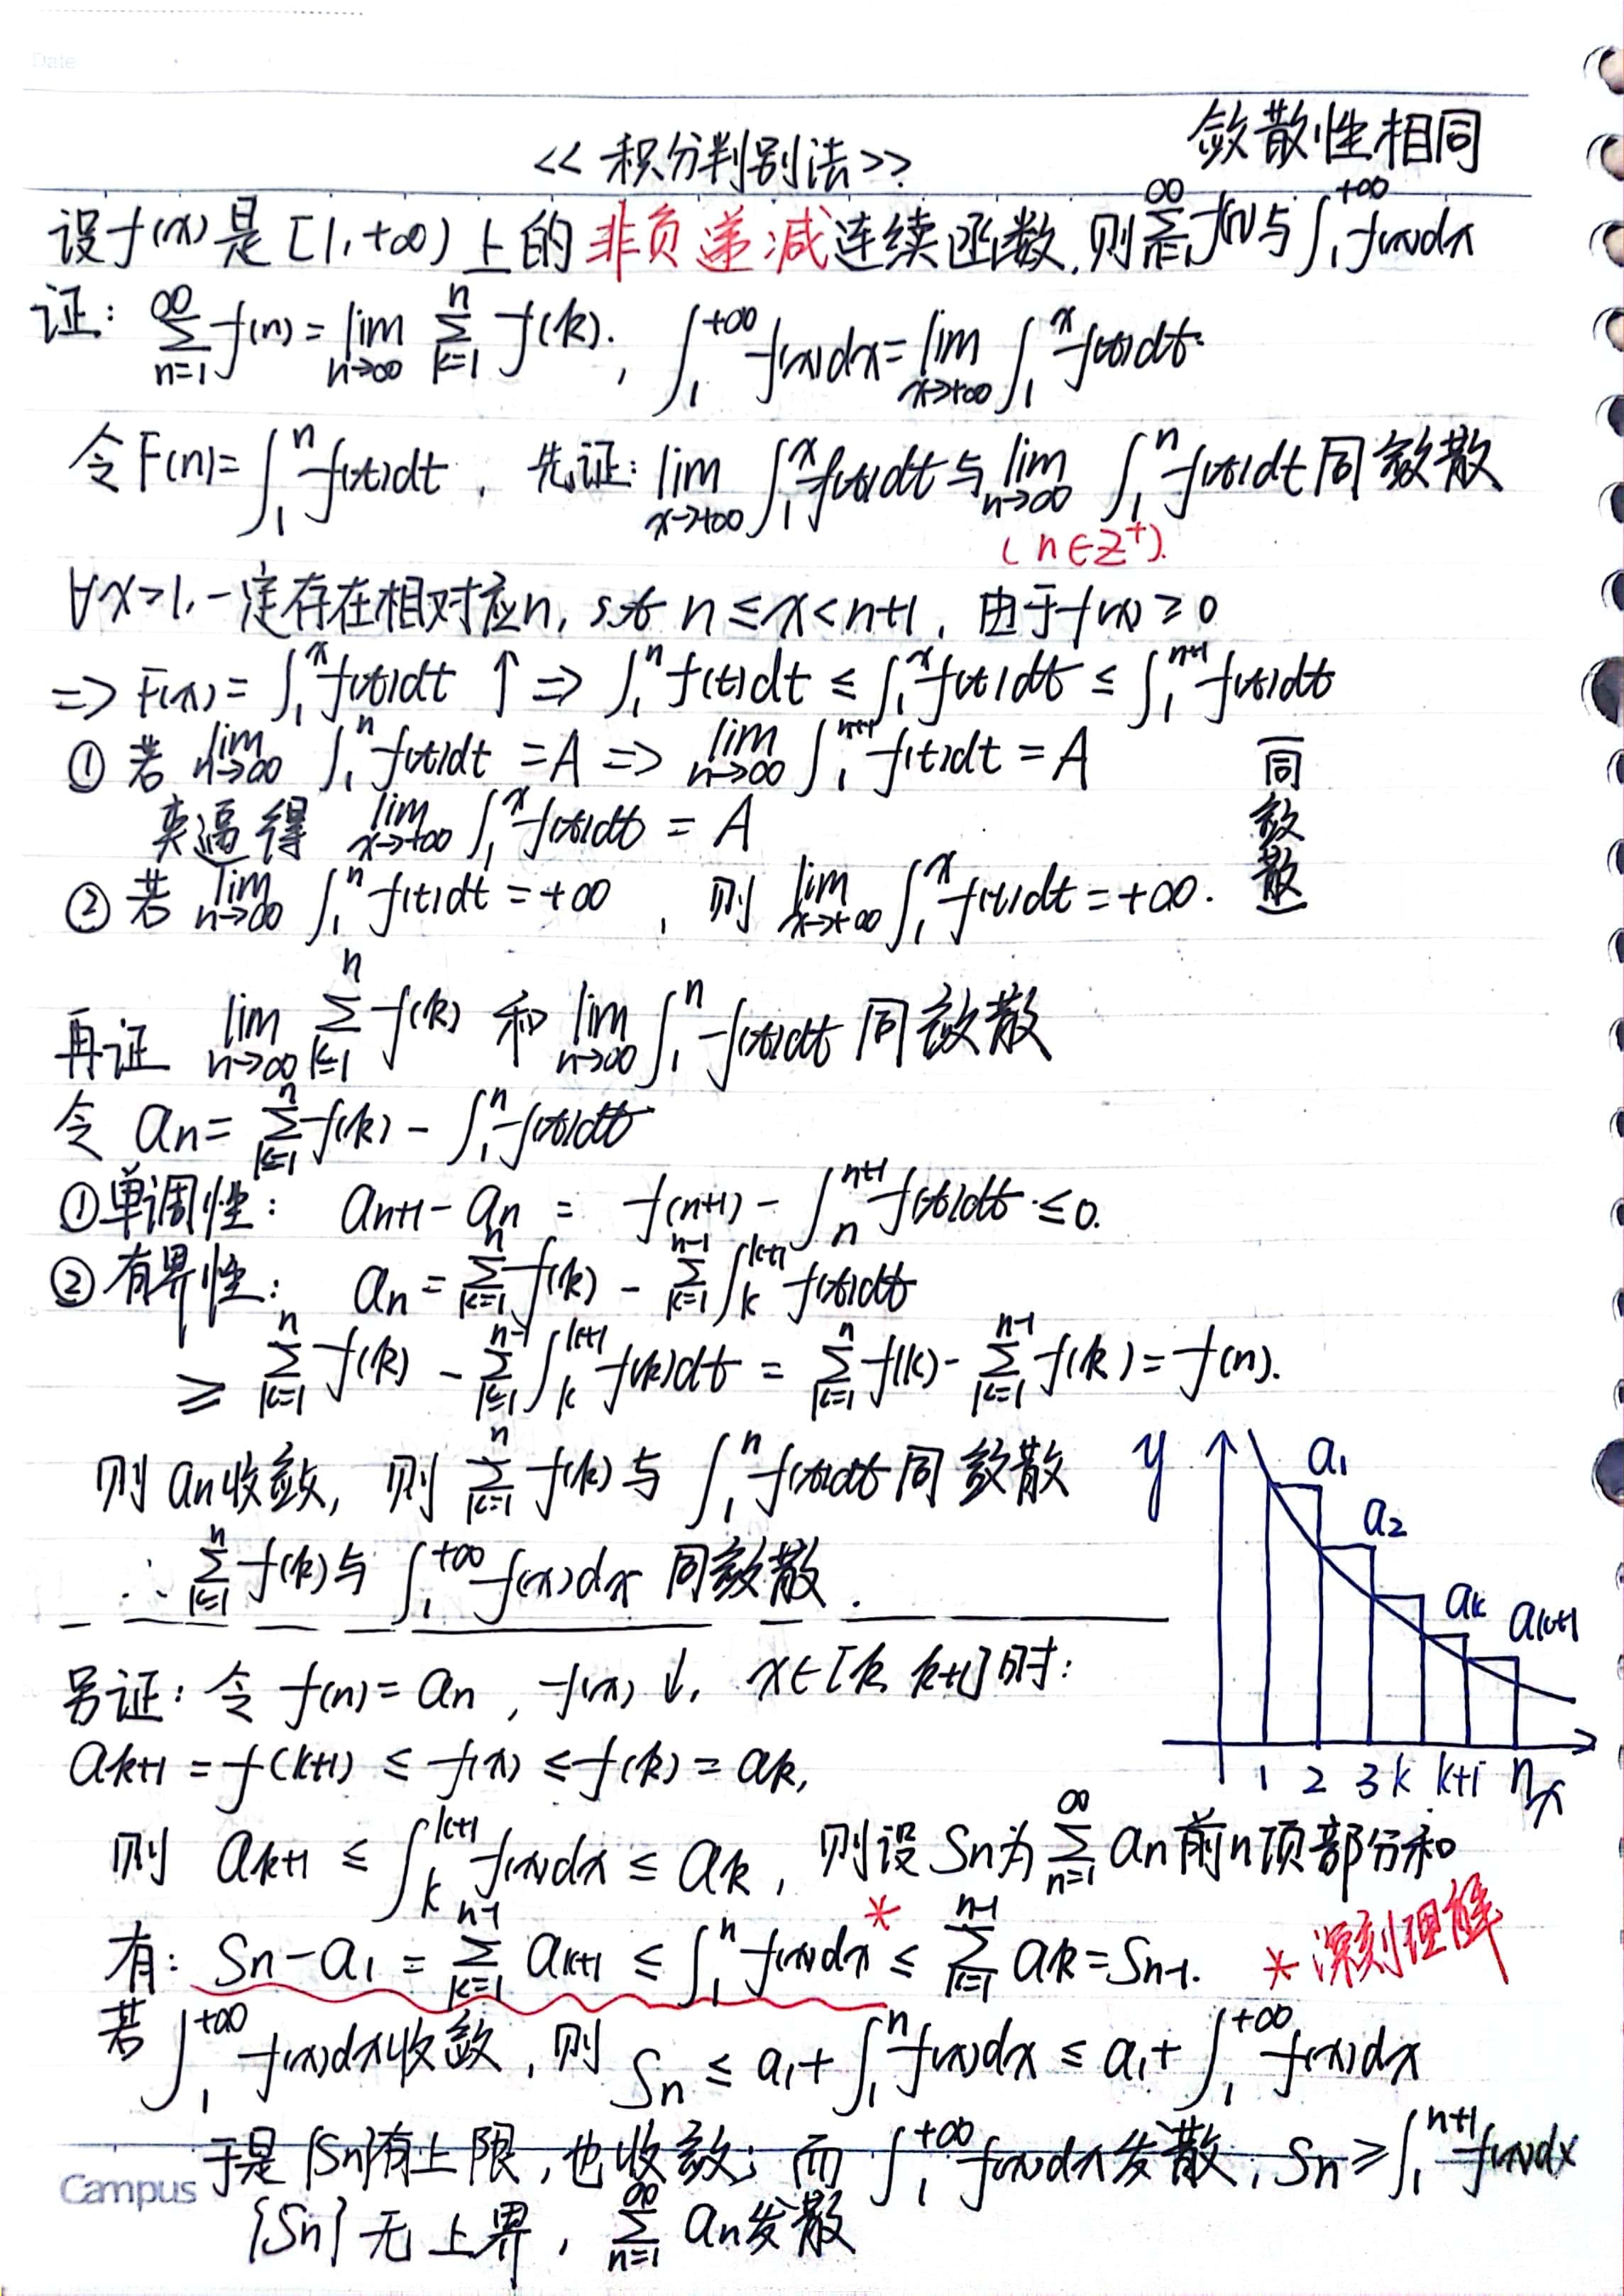 Date
敛散性相同
<<积分判别法>>
设f(x)是[1,+∞)上的非负递减连续函数,则∑_{n=1}^{∞}f(n)与∫_1^{+∞}f(x)dx
证: ∑_{n=1}^{∞}f(n)=lim_{n→∞}∑_{k=1}^{n}f(k). , ∫_1^{+∞}f(x)dx=lim_{x→+∞}∫_1^x f(t)dt.
令F(n)=∫_1^n f(t)dt , 先证: lim_{x→+∞}∫_1^x f(t)dt与lim_{n→∞}∫_1^n f(t)dt同敛散
(n∈Z⁺).
∀x>1,一定存在相对应n, s.t n≤x<n+1, 由于f(x)≥0
=> F(x)=∫_1^x f(t)dt ↑ => ∫_1^n f(t)dt ≤ ∫_1^x f(t)dt ≤ ∫_1^{n+1} f(t)dt
① 若 lim_{n→∞}∫_1^n f(t)dt =A => lim_{n→∞}∫_1^{n+1} f(t)dt = A
夹逼得 lim_{x→+∞}∫_1^x f(t)dt = A
② 若 lim_{n→∞}∫_1^n f(t)dt =+∞ , 则 lim_{x→+∞}∫_1^x f(t)dt =+∞.
同敛散
再证 lim_{n→∞}∑_{k=1}^{n}f(k) 和 lim_{n→∞}∫_1^n f(t)dt 同敛散
令 an= ∑_{k=1}^{n}f(k) - ∫_1^n f(t)dt
①单调性: a_{n+1}-a_n = f(n+1)-∫_n^{n+1} f(t)dt ≤0.
②有界性: an=∑_{k=1}^{n}f(k) - ∑_{k=1}^{n-1}∫_k^{k+1} f(t)dt
≥ ∑_{k=1}^{n}f(k) - ∑_{k=1}^{n-1}∫_k^{k+1} f(k)dt = ∑_{k=1}^{n}f(k)-∑_{k=1}^{n-1}f(k)=f(n).
则an收敛, 则∑_{k=1}^{n}f(k)与∫_1^n f(t)dt同敛散
∴∑_{k=1}^{n}f(k)与∫_1^{+∞}f(x)dx 同敛散.
y a1 a2 ak ak+1
1 2 3 k k+1 n x
另证: 令f(n)=an , f(x)↓, x∈[k, k+1]时:
ak+1=f(k+1)≤f(x)≤f(k)=ak,
则 ak+1≤∫_k^{k+1}f(x)dx≤ak, 则设Sn为∑_{n=1}^{∞}an前n项部分和
有: Sn-a1=∑_{k=1}^{n-1}ak+1≤∫_1^n f(x)dx*≤∑_{k=1}^{n-1}ak=Sn-1. *深刻理解
若∫_1^{+∞}f(x)dx收敛, 则 Sn≤a1+∫_1^n f(x)dx≤a1+∫_1^{+∞}f(x)dx
于是{Sn}有上限,也收敛; 而∫_1^{+∞}f(x)dx发散, Sn≥∫_1^{n+1}f(x)dx
Campus
{Sn}无上界, ∑_{n=1}^{∞}an发散